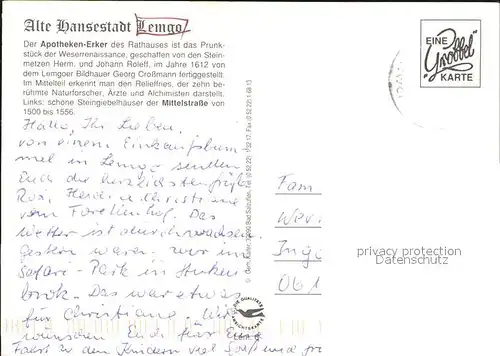 Alte Hansestadt Lemgo
Der Apotheken-Erker des Rathauses ist das Prunk-
stück der Weserrenaissance, geschaffen von den Stein-
metzen Herm. und Johann Roleff, im Jahre 1612 von
dem Lemgoer Bildhauer Georg Croßmann fertiggestellt.
Im Mittelteil erkennt man den Relieffries, der zehn be-
rühmte Naturforscher, Ärzte und Alchimisten darstellt.
Links: schöne Steingiebelhäuser der Mittelstraße von
1500 bis 1556.
EINE
Groh
KARTE
Hallo, Ihr Lieben,
von einem Einkaufsbum
mel in Lemgo senden
Euch die herzlichsten Grüße
Rosi, Herd. u. Christiane
vom Forellenhof. Das
Wetter ist durchwachsen.
Gestern waren wir im
Safari-Park in Stuken
brock. Das war etwas
für Christiane. Wir
wünschen Euch für Eure
Fahrt zu den Kindern viel Spaß und
Fam
Wer
Inge
061
© Gem. Kiefer, 32090 Bad Salzuflen, Tel. (0 52 22) 1 32 17, Fax (0 52 22) 1 68 13
privacy protection
Datenschutz